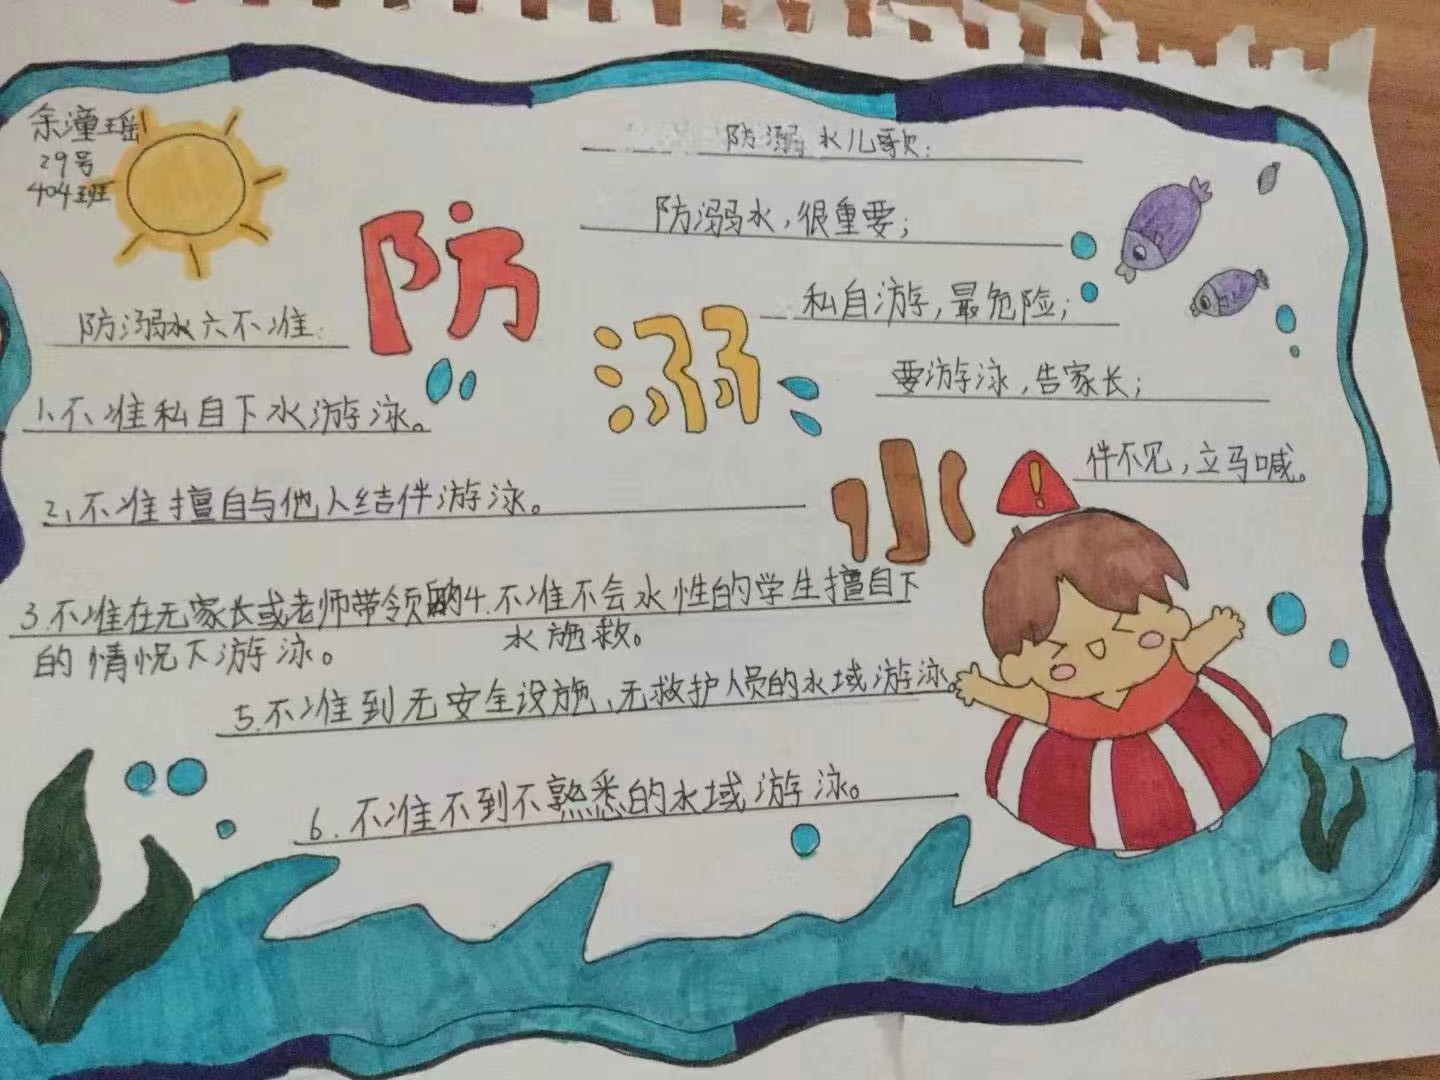 余潼瑶
29号
404班
防溺水
防溺水儿歌:
防溺水,很重要;
私自游,最危险;
要游泳,告家长;
件不见,立马喊。
防溺水六不准:
1、不准私自下水游泳。
2、不准擅自与他人结伴游泳。
3.不准在无家长或老师带领的
的情况下游泳。
4.不准不会水性的学生擅自下
水施救。
5.不准到无安全设施、无救护人员的水域游泳。
6.不准不到不熟悉的水域游泳。